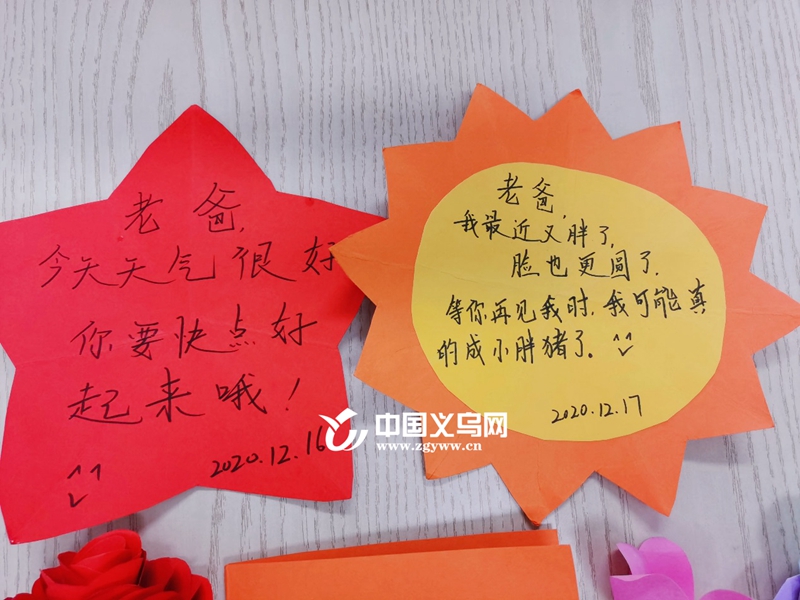 老爸,
今天天气很好
你要快点好
起来哦!
2020.12.16
老爸,
我最近又胖了,
脸也更圆了.
等你再见我时.我可能真
的成小胖猪了。
2020.12.17
中国义乌网
www.zgyww.cn